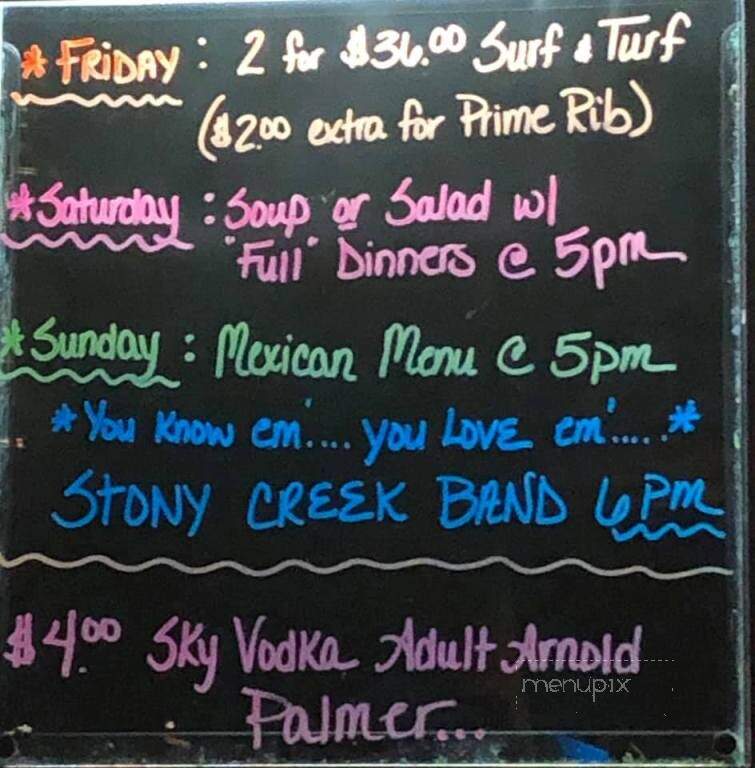 * FRiDAY : 2 for $36.00 Surf & Turf
($2.00 extra for Prime Rib)
*Saturday : Soup or Salad w/
"Full" Dinners @ 5pm
*Sunday : Mexican Menu @ 5pm
*You Know em'.... you LOVE em'.....*
STONY CREEK BAND 6PM
$4.00 Sky Vodka Adult Arnold
menupix
Palmer...